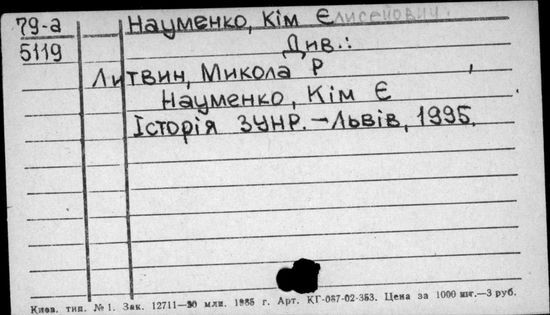 79-а Науменко, Кім Єлисейович.
5119 Див.:
Литвин, Микола Р
Науменко, Кім Є
Історія ЗУНР.—Львів, 1995.
Киев. тип. № 1. Зак. 12711—30 млн. 1985 г. Арт. КГ-087-02-353. Цена за 1000 шт.—3 руб.